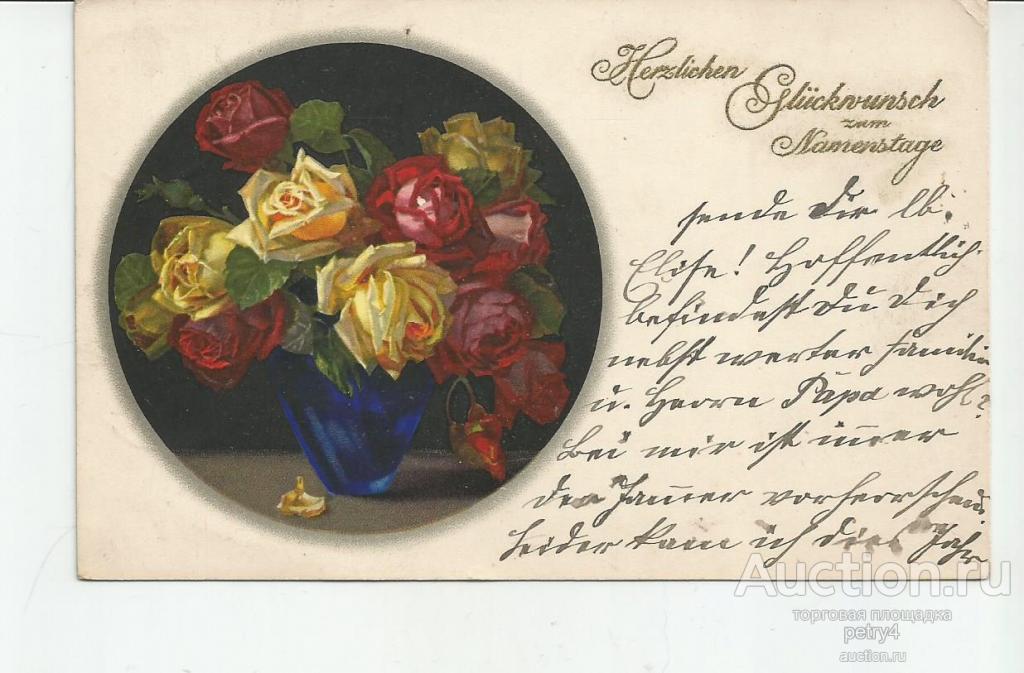 Herzlichen
Glückwunsch
zum
Namenstage
sende Dir lb.
Elise! Hoffentlich
befindest Du Dich
nebst werter Familie
u. Herrn Papa wohl?
Bei mir ist immer
der Jammer vorherrschend.
Leider kam ich dies Jahr
Auction.ru
торговая площадка
petry4
auction.ru